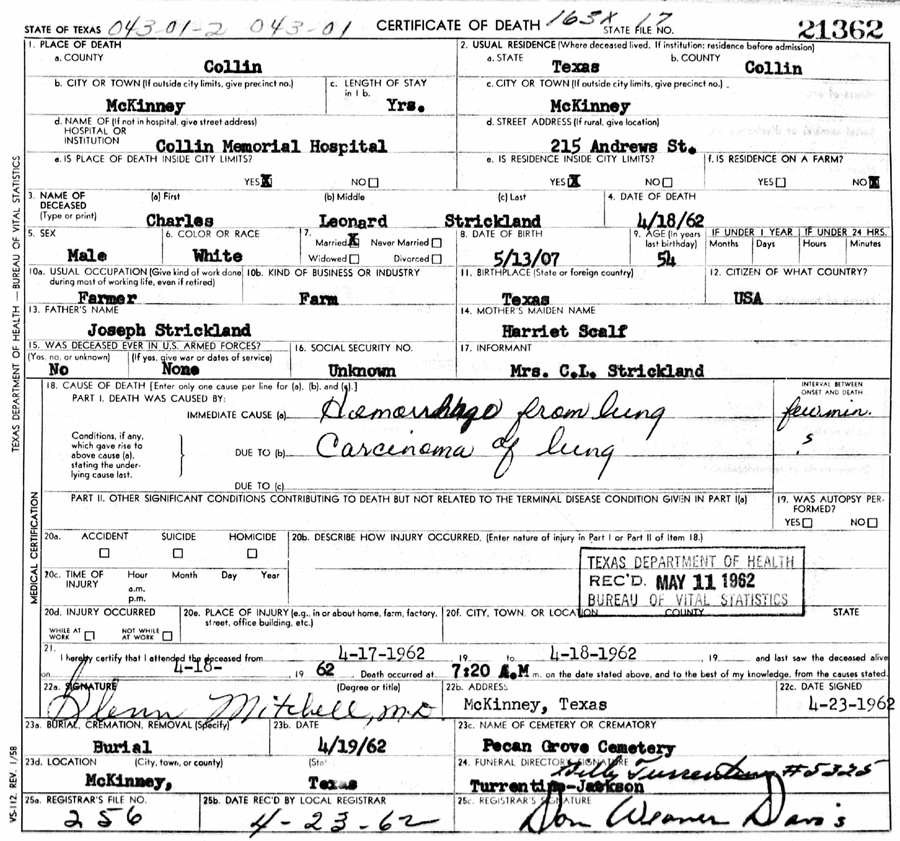 STATE OF TEXAS 043-01-2 043-01 CERTIFICATE OF DEATH 163X 17 STATE FILE NO. 21362
1. PLACE OF DEATH
a. COUNTY
Collin
2. USUAL RESIDENCE (Where deceased lived. If institution: residence before admission)
a. STATE
Texas
b. COUNTY
Collin
b. CITY OR TOWN (If outside city limits, give precinct no.)
McKinney
c. LENGTH OF STAY
in 1 b.
Yrs.
c. CITY OR TOWN (If outside city limits, give precinct no.)
McKinney
d. NAME OF (If not in hospital, give street address)
HOSPITAL OR
INSTITUTION
Collin Memorial Hospital
d. STREET ADDRESS (If rural, give location)
215 Andrews St.
e. IS PLACE OF DEATH INSIDE CITY LIMITS?
YES X NO
e. IS RESIDENCE INSIDE CITY LIMITS?
YES X NO
f. IS RESIDENCE ON A FARM?
YES NO X
3. NAME OF
DECEASED
(Type or print)
(a) First
Charles
(b) Middle
Leonard
(c) Last
Strickland
4. DATE OF DEATH
4/18/62
5. SEX
Male
6. COLOR OR RACE
White
7.
Married X Never Married
Widowed Divorced
8. DATE OF BIRTH
5/13/07
9. AGE (In years
last birthday)
54
IF UNDER 1 YEAR
Months Days
IF UNDER 24 HRS.
Hours Minutes
10a. USUAL OCCUPATION (Give kind of work done
during most of working life, even if retired)
Farmer
10b. KIND OF BUSINESS OR INDUSTRY
Farm
11. BIRTHPLACE (State or foreign country)
Texas
12. CITIZEN OF WHAT COUNTRY?
USA
13. FATHER'S NAME
Joseph Strickland
14. MOTHER'S MAIDEN NAME
Harriet Scalf
15. WAS DECEASED EVER IN U.S. ARMED FORCES?
(Yes, no, or unknown) (If yes, give war or dates of service)
No None
16. SOCIAL SECURITY NO.
Unknown
17. INFORMANT
Mrs. C.L. Strickland
18. CAUSE OF DEATH [Enter only one cause per line for (a), (b), and (c).]
PART I. DEATH WAS CAUSED BY:
IMMEDIATE CAUSE (a) Hemorrhage from lung
INTERVAL BETWEEN
ONSET AND DEATH
few min.
s
Conditions, if any,
which gave rise to
above cause (a),
stating the under-
lying cause last.
DUE TO (b) Carcinoma of lung
DUE TO (c)
PART II. OTHER SIGNIFICANT CONDITIONS CONTRIBUTING TO DEATH BUT NOT RELATED TO THE TERMINAL DISEASE CONDITION GIVEN IN PART I(a)
19. WAS AUTOPSY PER-
FORMED?
YES NO
20a. ACCIDENT SUICIDE HOMICIDE
20b. DESCRIBE HOW INJURY OCCURRED. (Enter nature of injury in Part I or Part II of Item 18.)
TEXAS DEPARTMENT OF HEALTH
REC'D. MAY 11 1962
BUREAU OF VITAL STATISTICS
20c. TIME OF
INJURY
Hour Month Day Year
a.m.
p.m.
20d. INJURY OCCURRED
WHILE AT
WORK
NOT WHILE
AT WORK
20e. PLACE OF INJURY (e.g., in or about home, farm, factory,
street, office building, etc.)
20f. CITY, TOWN, OR LOCATION COUNTY STATE
21.
I hereby certify that I attended the deceased from 4-17-1962 19 to 4-18-1962, 19 and last saw the deceased alive
on 4-18- 19 62 Death occurred at 7:20 A.M m. on the date stated above, and to the best of my knowledge, from the causes stated.
22a. SIGNATURE (Degree or title)
Glenn Mitchell, M.D
22b. ADDRESS
McKinney, Texas
22c. DATE SIGNED
4-23-1962
23a. BURIAL, CREMATION, REMOVAL (Specify)
Burial
23b. DATE
4/19/62
23c. NAME OF CEMETERY OR CREMATORY
Pecan Grove Cemetery
23d. LOCATION (City, town, or county) (Stat
McKinney, Texas
24. FUNERAL DIRECTOR'S SIGNATURE
Billy Turrentine #5325
Turrentine-Jackson
25a. REGISTRAR'S FILE NO.
256
25b. DATE REC'D BY LOCAL REGISTRAR
4-23-62
25c. REGISTRAR'S SIGNATURE
Don Weaver Davis
TEXAS DEPARTMENT OF HEALTH — BUREAU OF VITAL STATISTICS
MEDICAL CERTIFICATION
VS-112 REV. 1/58